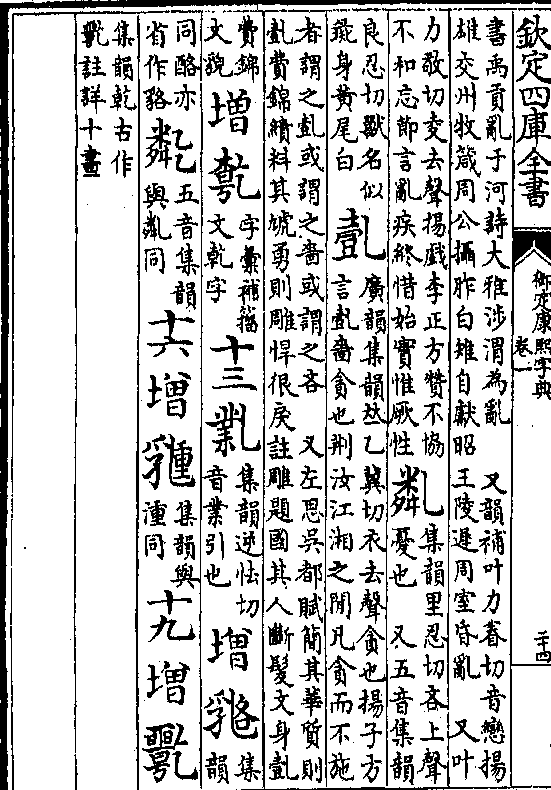 欽定四庫全書
御定康熙字典
卷一
二十四
書禹貢亂于河詩大雅涉渭為亂 又韻補叶力眷切音戀揚
雄交州牧箴周公攝胙白雉自獻昭王陵遲周室昏亂 又叶
力敬切夌去聲揚戲李正方贊不協
不和忘節言亂疾終惜始實惟厥性
亃
集韻里忍切吝上聲
憂也 又五音集韻
良忍切獸名似
龍身黃尾白
亄
廣韻集韻𠀤乙冀切衣去聲貪也揚子方
言亄嗇貪也荊汝江湘之閒凡貪而不施
者謂之亄或謂之嗇或謂之吝 又左思吳都賦簡其華質則
亄費錦繢料其虓勇則雕悍很戾註雕題國其人斷髮文身亄
費錦
文貌
增
字彙補籀
文乾字
十三
集韻逆怯切
音業引也
增
集
韻
同酪亦
省作
五音集韻
與亃同
十六
增
集韻與
湩同
十九
增
集韻乾古作
註詳十畫